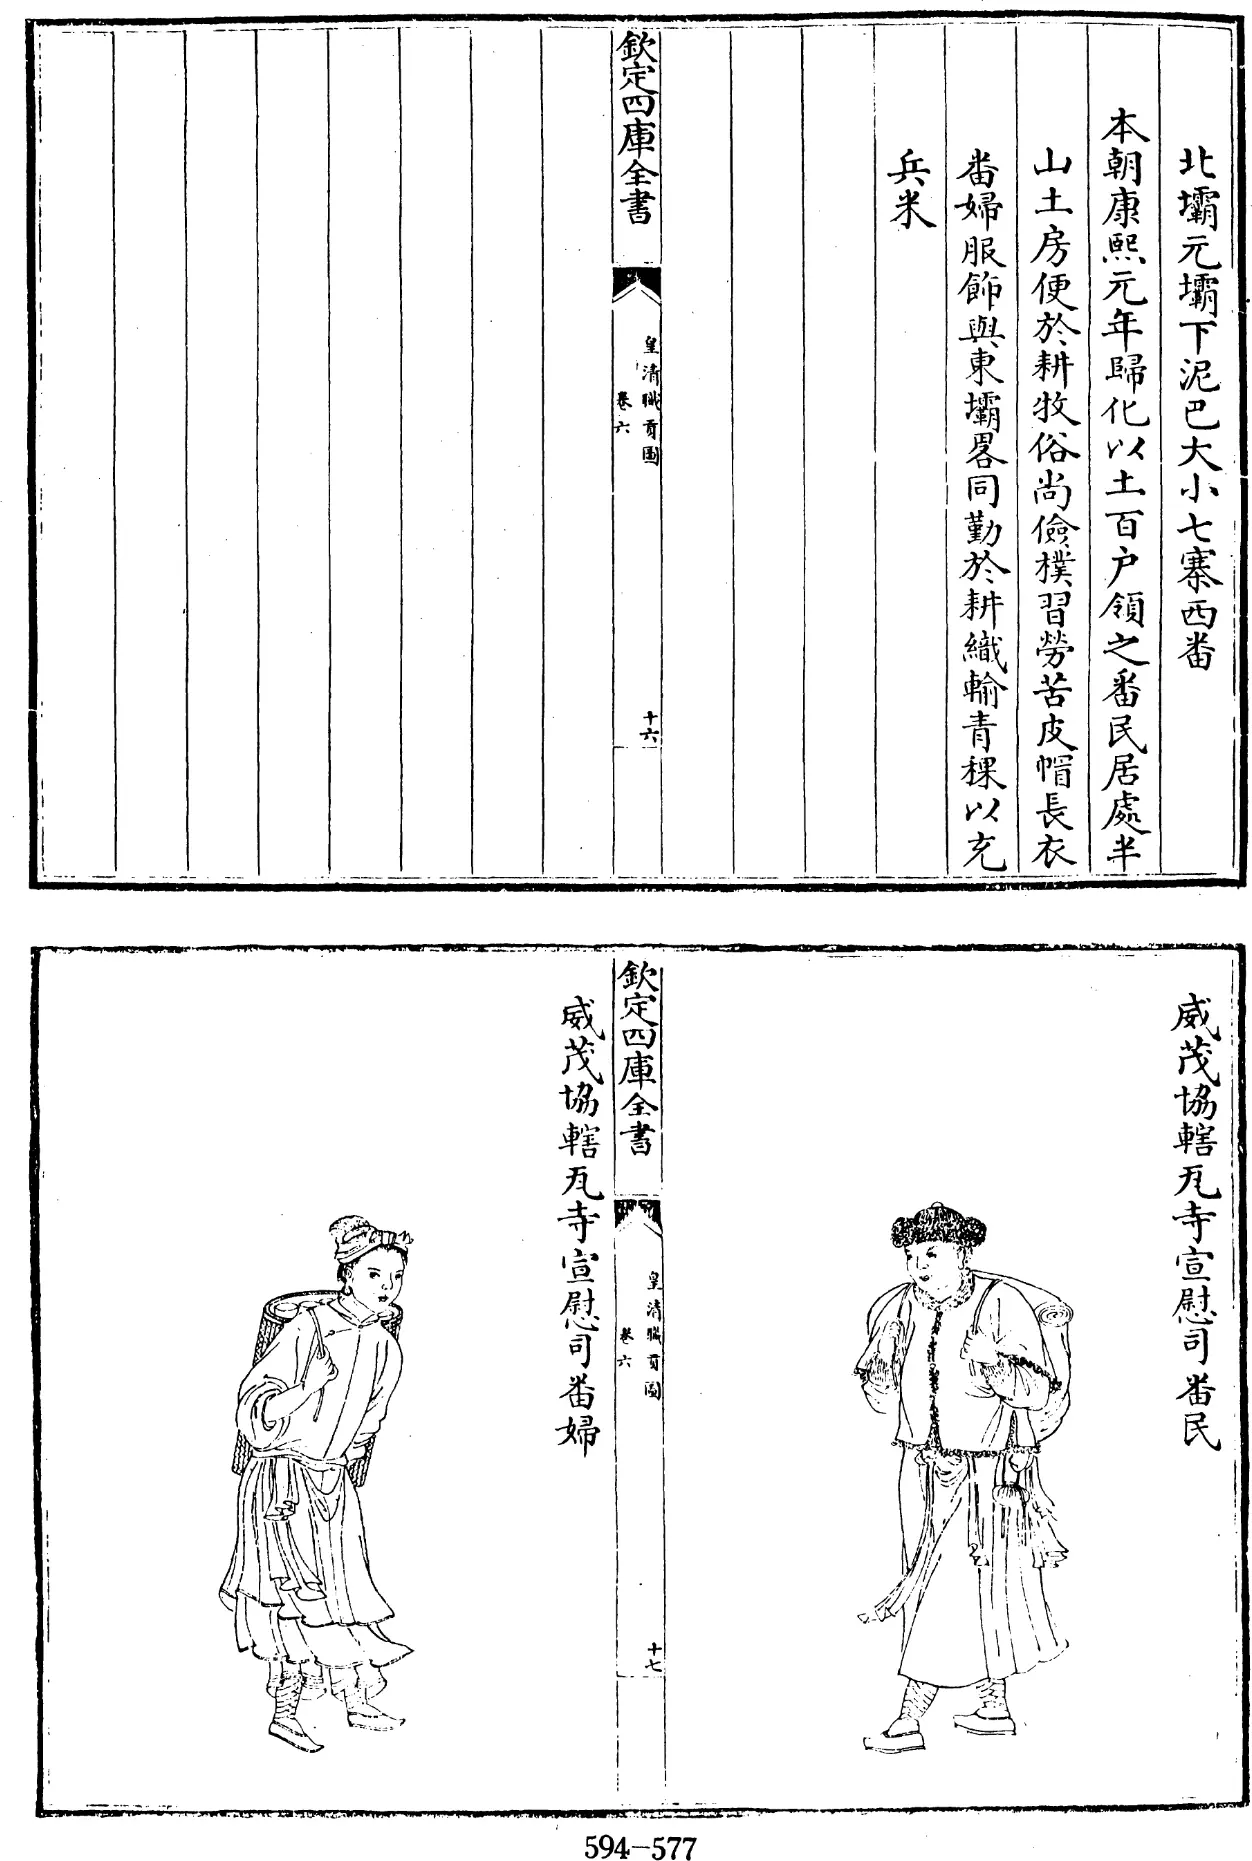 北壩元壩下泥巴大小七寨西番
本朝康熙元年歸化以土百户領之番民居處半
山土房便於耕牧俗尚儉樸習勞苦皮帽長衣
番婦服飾與東壩畧同勤於耕織輸青稞以充
兵米
欽定四庫全書
皇清職貢圖
卷六
十六
威茂協轄瓦寺宣慰司番民
欽定四庫全書
皇清職貢圖
卷六
十七
威茂協轄瓦寺宣慰司番婦
594-577